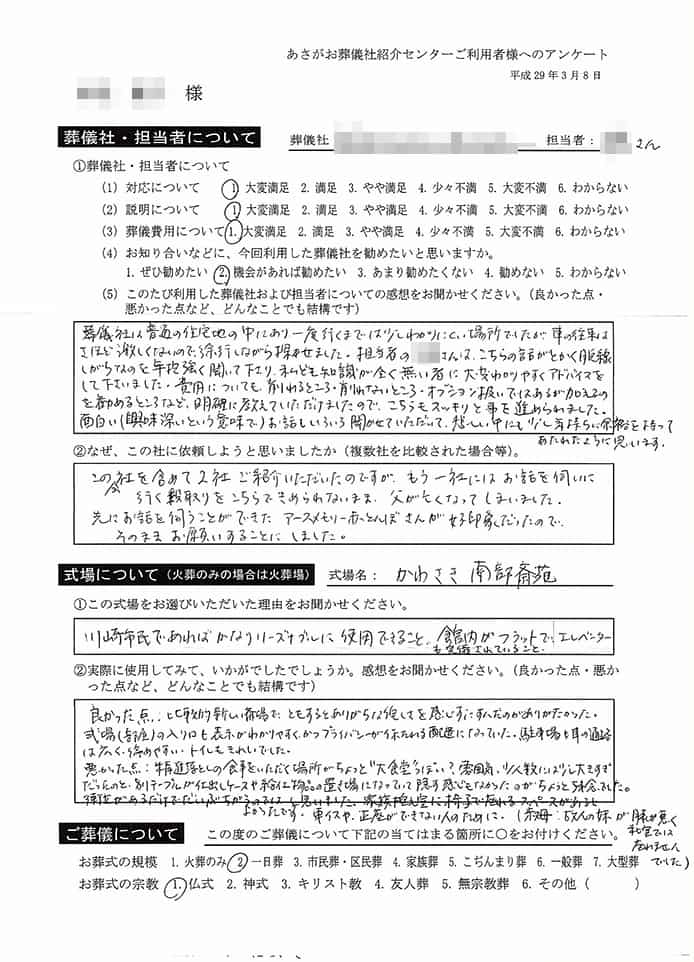 あさがお葬儀社紹介センターご利用者様へのアンケート
平成29年3月8日
様
葬儀社・担当者について 葬儀社 担当者: さん
①葬儀社・担当者について
(1) 対応について 1. 大変満足 2. 満足 3. やや満足 4. 少々不満 5. 大変不満 6. わからない
(2) 説明について 1. 大変満足 2. 満足 3. やや満足 4. 少々不満 5. 大変不満 6. わからない
(3) 葬儀費用について 1. 大変満足 2. 満足 3. やや満足 4. 少々不満 5. 大変不満 6. わからない
(4) お知り合いなどに、今回利用した葬儀社を勧めたいと思いますか。
1. ぜひ勧めたい 2. 機会があれば勧めたい 3. あまり勧めたくない 4. 勧めない 5. わからない
(5) このたび利用した葬儀社および担当者についての感想をお聞かせください。(良かった点・
悪かった点など、どんなことでも結構です)
葬儀社は普通の住宅地の中にあり一度行くまでは少しわかりにくい場所でしたが、車の往来は
さほど激しくないので徐行しながら探せました。担当者の さんは、こちらの話がとかく脱線
しがちなのを辛抱強く聞いて下り、私ども知識が全く無い者に大変わかりやすくアドバイスを
して下さいました。費用についても、削れるところ・削れないところ・オプション扱いではあるが加えるの
を勧めるところなど、明確に教えていただけましたので、こちらもスッキリと事を進められました。
面白い(興味深いという意味で)お話もいろいろ聞かせていただいて、悲しい中にも少し気持ちに余裕を持って
あたれたように思います。
②なぜ、この社に依頼しようと思いましたか(複数社を比較された場合等)。
この社を含めて2社ご紹介いただいたのですが、もう一社にはお話を伺いに
行く段取りをこちらできめられないまま、父が亡くなってしまいました。
先にお話を伺うことができたアースメモリー赤とんぼさんが好印象だったので、
そのままお願いすることにしました。
式場について(火葬のみの場合は火葬場) 式場名: かわさき南部斎苑
①この式場をお選びいただいた理由をお聞かせください。
川崎市民であればかなりリーズナブルに使用できること、館内がフラットで、エレベーター
も完備されていること。
②実際に使用してみて、いかがでしたでしょうか。感想をお聞かせください。(良かった点・悪か
った点など、どんなことでも結構です)
良かった点:比較的新しい斎場で、ともするとありがちな をを感じずにすんだのがありがたかった。
式場(部屋)の入り口も表示がわかりやすく、かつプライバシーが保たれる配置になっていた。駐車場も車の通路
は広く、停めやすい。トイレもきれいでした。
悪かった点:精進落としの食事をいただく場所がちょっと"大食堂"っぽい?雰囲気で、少人数には少し大きすぎ
だったのと、別テーブルが仕出しケースや給仕物品の置き場になっていて隠す感じでもなかったのがちょっと残念でした。
衝立があるだけでだいぶちがうのではと思いました。家族控え室に椅子で座れるスペースが少し
ようったです。車イスや、正座ができない人のために。(叔母:故人の妹が膝が悪く
和室では
座れません
でした)
ご葬儀について この度のご葬儀について下記の当てはまる箇所に○をお付けください。
お葬式の規模 1. 火葬のみ 2. 一日葬 3. 市民葬・区民葬 4. 家族葬 5. こぢんまり葬 6. 一般葬 7. 大型葬
お葬式の宗教 1. 仏式 2. 神式 3. キリスト教 4. 友人葬 5. 無宗教葬 6. その他 ( )